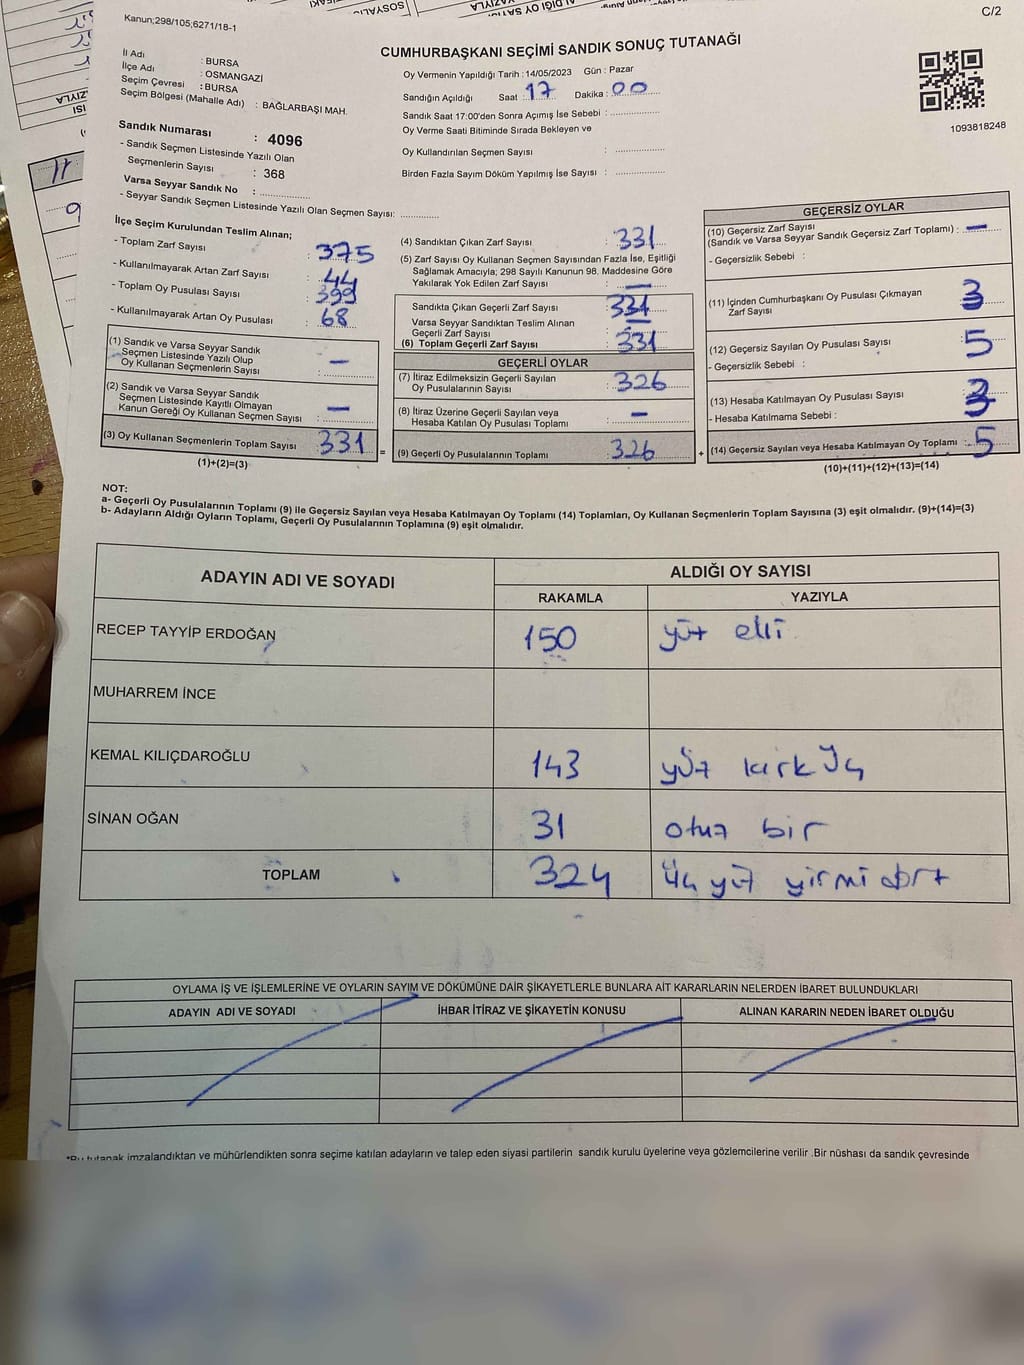 Kanun;298/105;6271/18-1
C/2
CUMHURBAŞKANI SEÇİMİ SANDIK SONUÇ TUTANAĞI
İl Adı : BURSA
İlçe Adı : OSMANGAZİ
Seçim Çevresi : BURSA
Seçim Bölgesi (Mahalle Adı) : BAĞLARBAŞI MAH.
Sandık Numarası : 4096
- Sandık Seçmen Listesinde Yazılı Olan
Seçmenlerin Sayısı : 368
Varsa Seyyar Sandık No :
- Seyyar Sandık Seçmen Listesinde Yazılı Olan Seçmen Sayısı:
Oy Vermenin Yapıldığı Tarih :14/05/2023 Gün : Pazar
Sandığın Açıldığı Saat 17 Dakika : 00
Sandık Saat 17:00'den Sonra Açımış İse Sebebi :
Oy Verme Saati Bitiminde Sırada Bekleyen ve
Oy Kullandırılan Seçmen Sayısı :
Birden Fazla Sayım Döküm Yapılmış İse Sayısı :
1093818248
İlçe Seçim Kurulundan Teslim Alınan;
- Toplam Zarf Sayısı : 375
- Kullanılmayarak Artan Zarf Sayısı : 44
- Toplam Oy Pusulası Sayısı : 399
- Kullanılmayarak Artan Oy Pusulası : 68
(1) Sandık ve Varsa Seyyar Sandık
Seçmen Listesinde Yazılı Olup
Oy Kullanan Seçmenlerin Sayısı : —
(2) Sandık ve Varsa Seyyar Sandık
Seçmen Listesinde Kayıtlı Olmayan
Kanun Gereği Oy Kullanan Seçmen Sayısı : —
(3) Oy Kullanan Seçmenlerin Toplam Sayısı : 331 =
(1)+(2)=(3)
(4) Sandıktan Çıkan Zarf Sayısı : 331
(5) Zarf Sayısı Oy Kullanan Seçmen Sayısından Fazla İse, Eşitliği
Sağlamak Amacıyla; 298 Sayılı Kanunun 98. Maddesine Göre
Yakılarak Yok Edilen Zarf Sayısı : —
Sandıkta Çıkan Geçerli Zarf Sayısı : 331
Varsa Seyyar Sandıktan Teslim Alınan
Geçerli Zarf Sayısı : —
(6) Toplam Geçerli Zarf Sayısı : 331
GEÇERLİ OYLAR
(7) İtiraz Edilmeksizin Geçerli Sayılan
Oy Pusulalarının Sayısı : 326
(8) İtiraz Üzerine Geçerli Sayılan veya
Hesaba Katılan Oy Pusulası Toplamı : —
(9) Geçerli Oy Pusulalarının Toplamı : 326 +
GEÇERSİZ OYLAR
(10) Geçersiz Zarf Sayısı
(Sandık ve Varsa Seyyar Sandık Geçersiz Zarf Toplamı) : —
- Geçersizlik Sebebi :
(11) İçinden Cumhurbaşkanı Oy Pusulası Çıkmayan
Zarf Sayısı :
(12) Geçersiz Sayılan Oy Pusulası Sayısı : 5
- Geçersizlik Sebebi :
(13) Hesaba Katılmayan Oy Pusulası Sayısı :
- Hesaba Katılmama Sebebi :
(14) Geçersiz Sayılan veya Hesaba Katılmayan Oy Toplamı : 5
(10)+(11)+(12)+(13)=(14)
NOT:
a- Geçerli Oy Pusulalarının Toplamı (9) ile Geçersiz Sayılan veya Hesaba Katılmayan Oy Toplamı (14) Toplamları, Oy Kullanan Seçmenlerin Toplam Sayısına (3) eşit olmalıdır. (9)+(14)=(3)
b- Adayların Aldığı Oyların Toplamı, Geçerli Oy Pusulalarının Toplamına (9) eşit olmalıdır.
ADAYIN ADI VE SOYADI
ALDIĞI OY SAYISI
RAKAMLA YAZIYLA
RECEP TAYYİP ERDOĞAN 150 yüz elli
MUHARREM İNCE
KEMAL KILIÇDAROĞLU 143 yüz kırk üç
SİNAN OĞAN 31 otuz bir
TOPLAM 324 üç yüz yirmi dört
OYLAMA İŞ VE İŞLEMLERİNE VE OYLARIN SAYIM VE DÖKÜMÜNE DAİR ŞİKAYETLERLE BUNLARA AİT KARARLARIN NELERDEN İBARET BULUNDUKLARI
ADAYIN ADI VE SOYADI İHBAR İTİRAZ VE ŞİKAYETİN KONUSU ALINAN KARARIN NEDEN İBARET OLDUĞU
*Bu tutanak imzalandıktan ve mühürlendikten sonra seçime katılan adayların ve talep eden siyasi partilerin sandık kurulu üyelerine veya gözlemcilerine verilir .Bir nüshası da sandık çevresinde